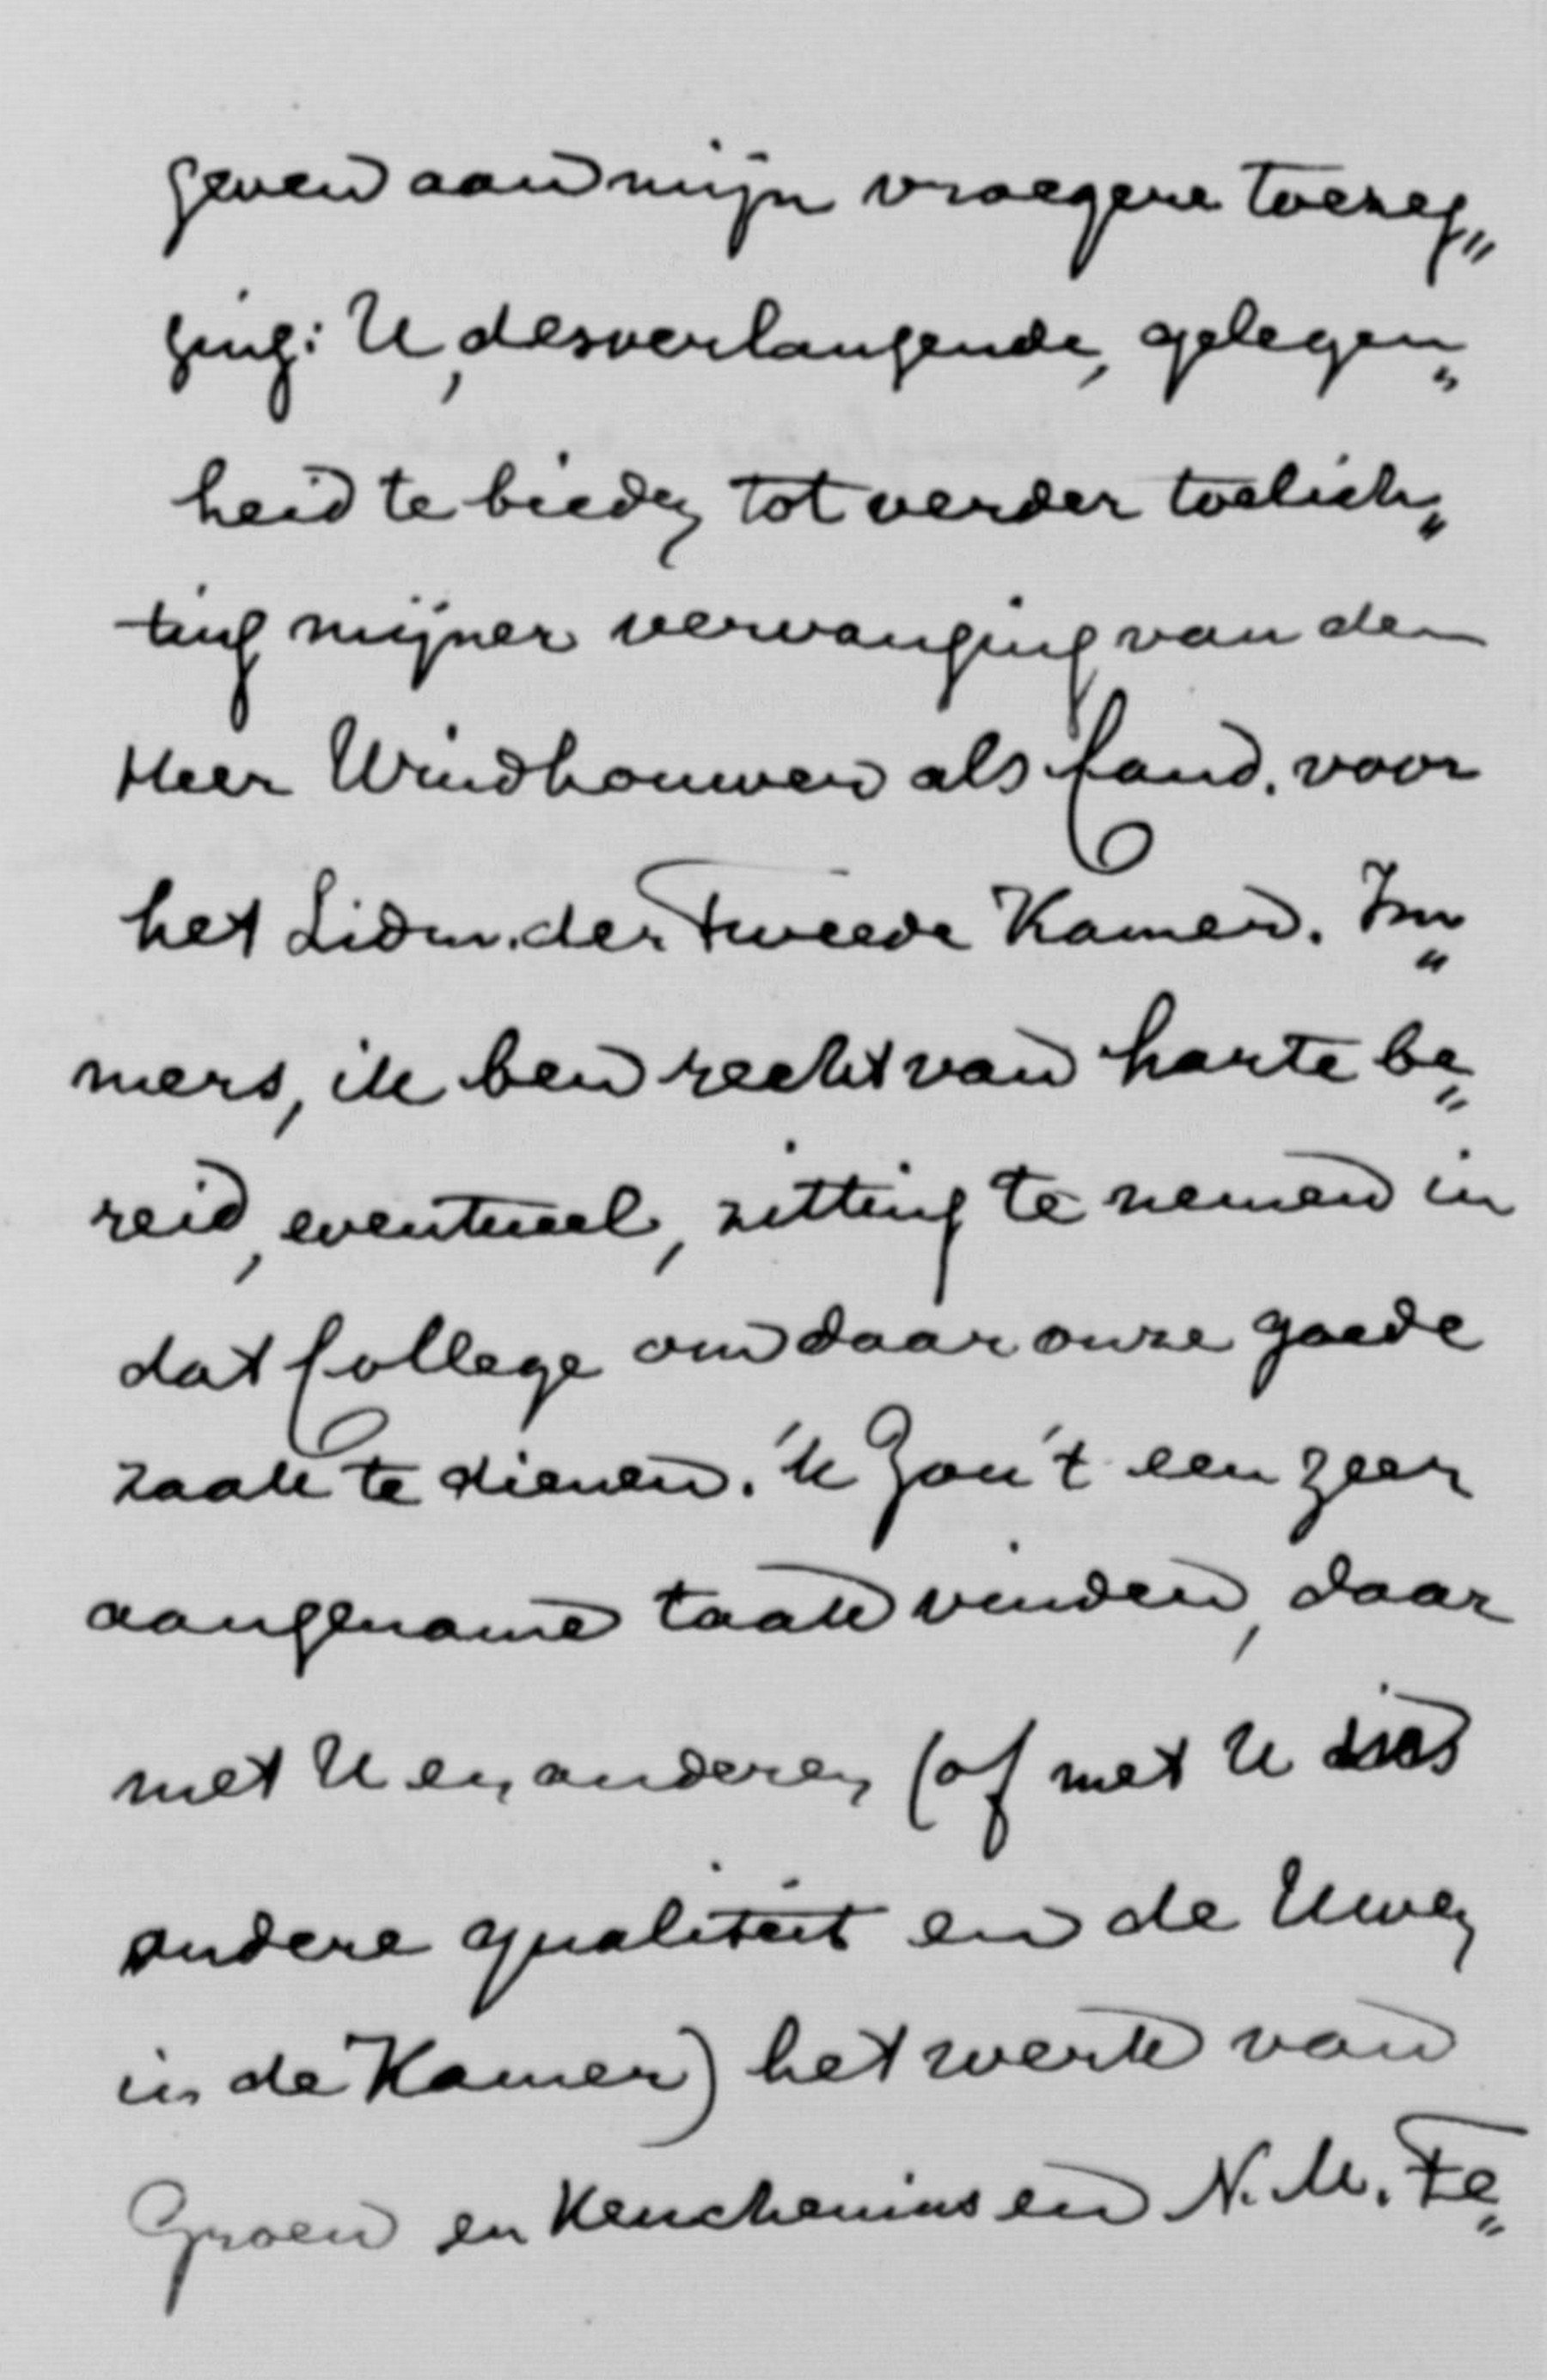 geven aan mijn vroegere toezeg„
ging: U, desverlangende, gelegen„
heid te bieden tot verder toelich„
ting mijner vervanging van den
Heer Windhouwer als Cand. voor
het Lidm. der Tweede Kamer. Im„
mers, ik ben recht van harte be„
reid, eventueel, zitting te nemen in
dat College om daar onze goede
zaak te dienen. 'k Zou 't een zeer
aangename taak vinden, daar
met U en anderen (of met U in
andere qualiteit en de Uwen
in de Kamer) het werk van
Groen en Keuchenius en N. M. Fe„